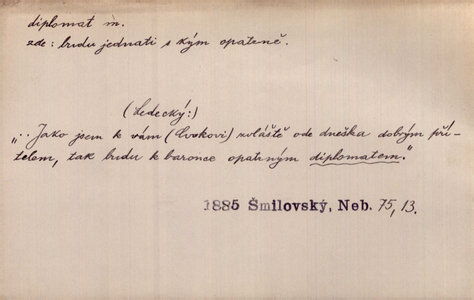 diplomat m.
zde: budu jednati s kým opatrně.
(Ledecký:)
„.. Jako jsem k vám (Cvokovi) zvláště ode dneška dobrým pří-
telem, tak budu k baronce opatrným diplomatem."
1885 Šmilovský, Neb. 75, 13.